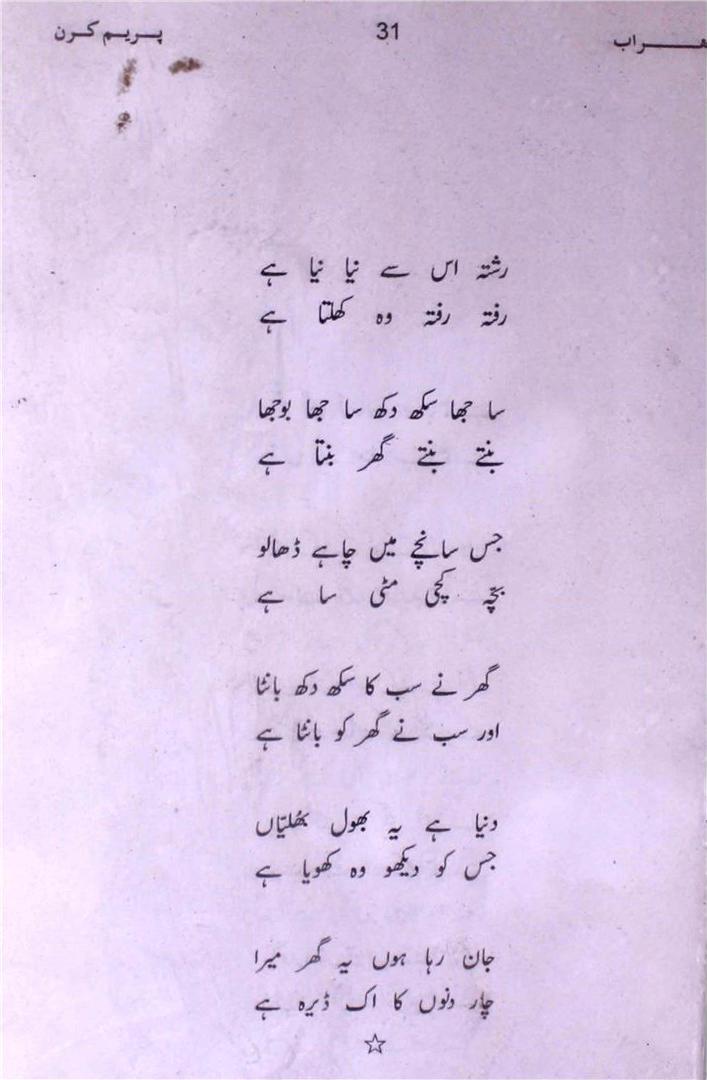 ھـــراب
31
پـریـم کـرن
رشتہ اس سے نیا نیا ہے
رفتہ رفتہ وہ کھلتا ہے
سا جھا سکھ دکھ سا جھا بوجھا
بنتے بنتے گھر بنتا ہے
جس سانچے میں چاہے ڈھالو
بچّہ کچی مٹی سا ہے
گھر نے سب کا سکھ دکھ بانٹا
اور سب نے گھر کو بانٹا ہے
دنیا ہے یہ بھول بھُلیّاں
جس کو دیکھو وہ کھویا ہے
جان رہا ہوں یہ گھر میرا
چار دنوں کا اک ڈیرہ ہے
☆